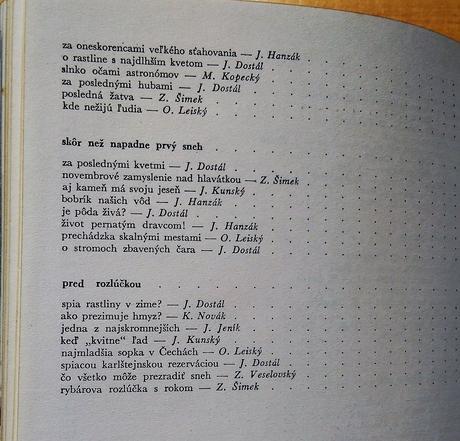 za oneskorencami veľkého sťahovania — J. Hanzák
o rastline s najdlhším kvetom — J. Dostál
slnko očami astronómov — M. Kopecký
za poslednými hubami — J. Dostál
posledná žatva — Z. Šimek
kde nežijú ľudia — O. Leiský
skôr než napadne prvý sneh
za poslednými kvetmi — J. Dostál
novembrové zamyslenie nad hlavátkou — Z. Šimek
aj kameň má svoju jeseň — J. Kunský
bobrík našich vôd — J. Hanzák
je pôda živá? — J. Dostál
život pernatým dravcom! — J. Hanzák
prechádzka skalnými mestami — O. Leiský
o stromoch zbavených čara — J. Dostál
pred rozlúčkou
spia rastliny v zime? — J. Dostál
ako prezimuje hmyz? — K. Novák
jedna z najskromnejších — J. Jeník
keď „kvitne" ľad — J. Kunský
najmladšia sopka v Čechách — O. Leiský
spiacou karlštejnskou rezerváciou — J. Dostál
čo všetko môže prezradiť sneh — Z. Veselovský
rybárova rozlúčka s rokom — Z. Šimek